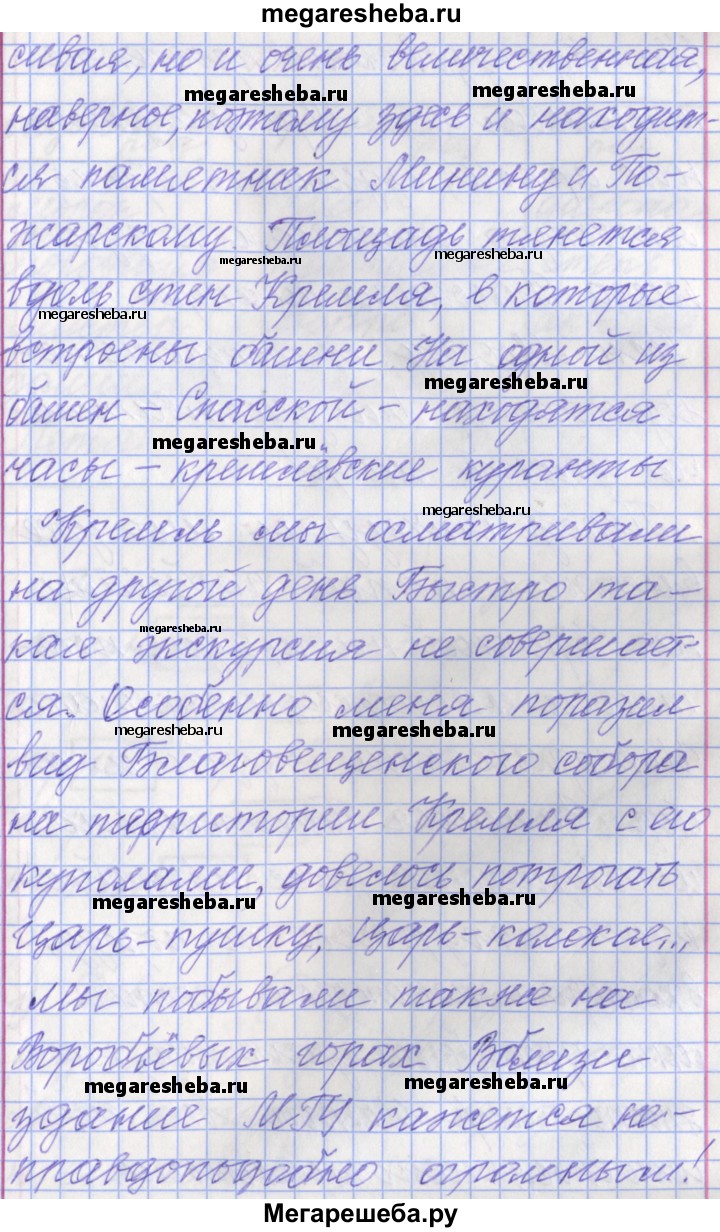 megaresheba.ru
сивая, но и очень величественная,
megaresheba.ru megaresheba.ru
наверное, поэтому здесь и находит-
ся памятник Минину и По-
жарскому. Площадь тянется
megaresheba.ru megaresheba.ru
вдоль стен Кремля, в которые
megaresheba.ru
встроены башни. На одной из
megaresheba.ru
башен – Спасской – находятся
megaresheba.ru
часы – кремлёвские куранты.
megaresheba.ru
Кремль мы осматривали
на другой день. Быстро та-
megaresheba.ru
кая экскурсия не совершает-
ся. Особенно меня поразил
megaresheba.ru megaresheba.ru
вид Благовещенского собора
на территории Кремля с его
куполами, довелось потрогать
megaresheba.ru megaresheba.ru
Царь-пушку, Царь-колокол...
Мы побывали также на
Воробьёвых горах. Вблизи
megaresheba.ru megaresheba.ru
здание МГУ кажется не-
правдоподобно огромным!
Мегарешеба.ру